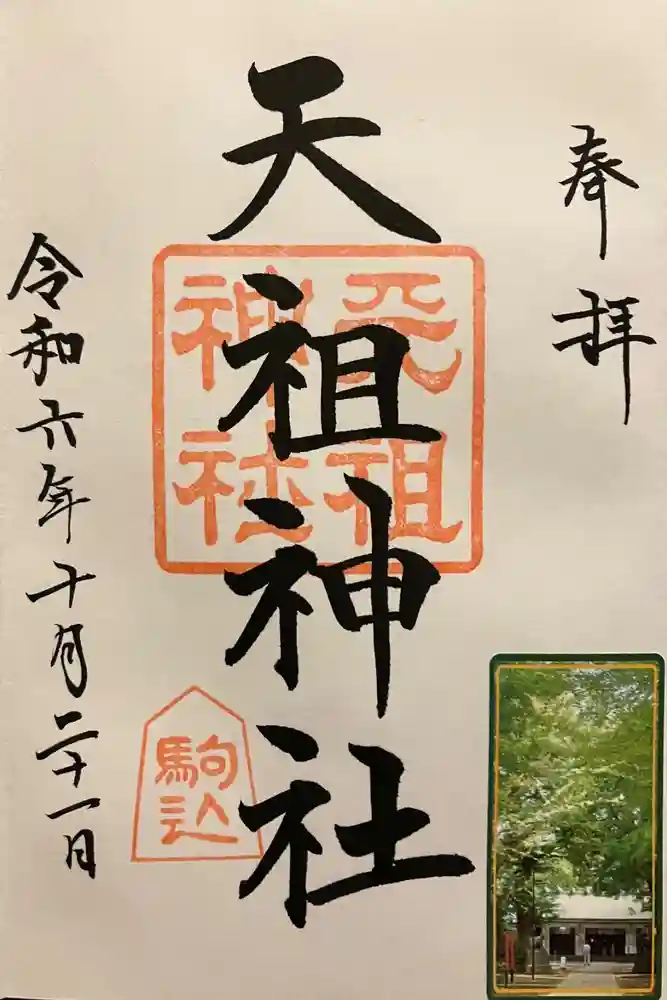 奉拝
天祖神社
天祖神社
駒込
令和六年十月二十一日